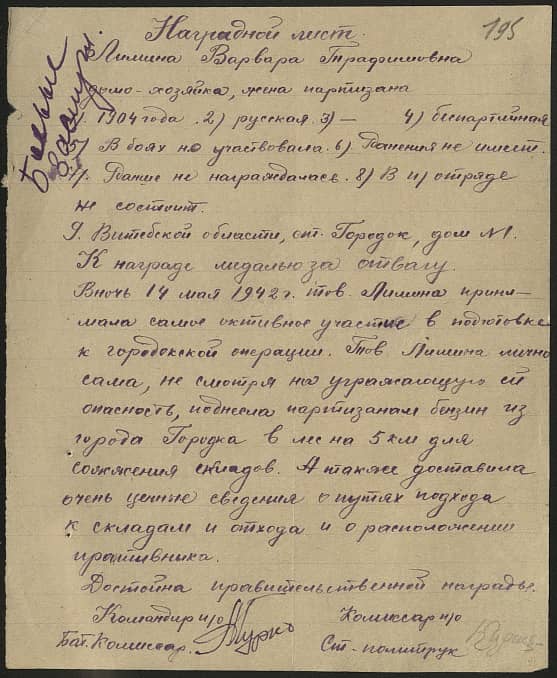 195
Наградной лист.
Лимина Варвара Трафимовна
домо-хозяйка, жена партизана
1904 года. 2) русская. 3) — 4) беспартийная
5) В боях не участвовала. 6) Ранения не имеет.
7) Ранше не награждалась. 8) В п/отряде
не состоит.
9. Витебской области, ст. Городок, дом №1.
К награде медалью за отвагу.
В ночь 14 мая 1942 г. тов. Лимина прини-
мала самое активное участие в подготовке
к городокской операции. Тов Лимина лично
сама, не смотря на угражающую ей
опасность, поднесла партизанам бензин из
города Городка в лес на 5 км для
сожжения складов. А также доставила
очень ценные сведения о путях подхода
к складам и отхода и о расположении
противника.
Достойна правительственной награды.
Командир п/о Комиссар п/о
Бат. Комиссар. Ст. политрук